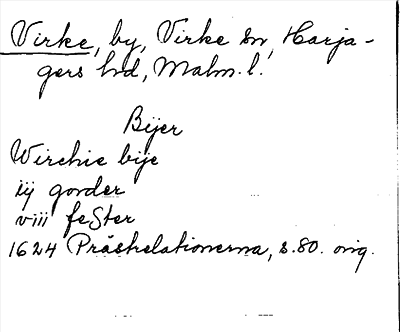 Virke, by, Virke sn, Harja-
gers hd, Malm. l.
Bijer
Wirchie bije
iij gorder
viii fester
1624 Prästrelationerna, s. 80. orig.